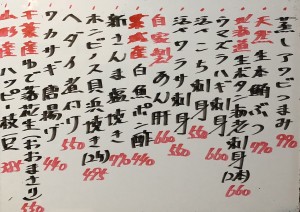 蒸しアワビつまみ 990
天然生本鮪ぶつ 770
北海道生本ボタン海老刺身(2本) 660
ウマズラハギ刺身 660
活〆こち刺身 550
活〆ワラサ刺身 550
自家製あん肝 660
茨城産白魚ポン酢 440
新さんま塩焼き 770
ホンビノス貝浜焼き(2ケ) 495
ヘダイ煮付け 550
ワカサギ唐揚げ 440
千葉産ゆで落花生(おおまさり) 550
山形産ハッピー枝豆 385